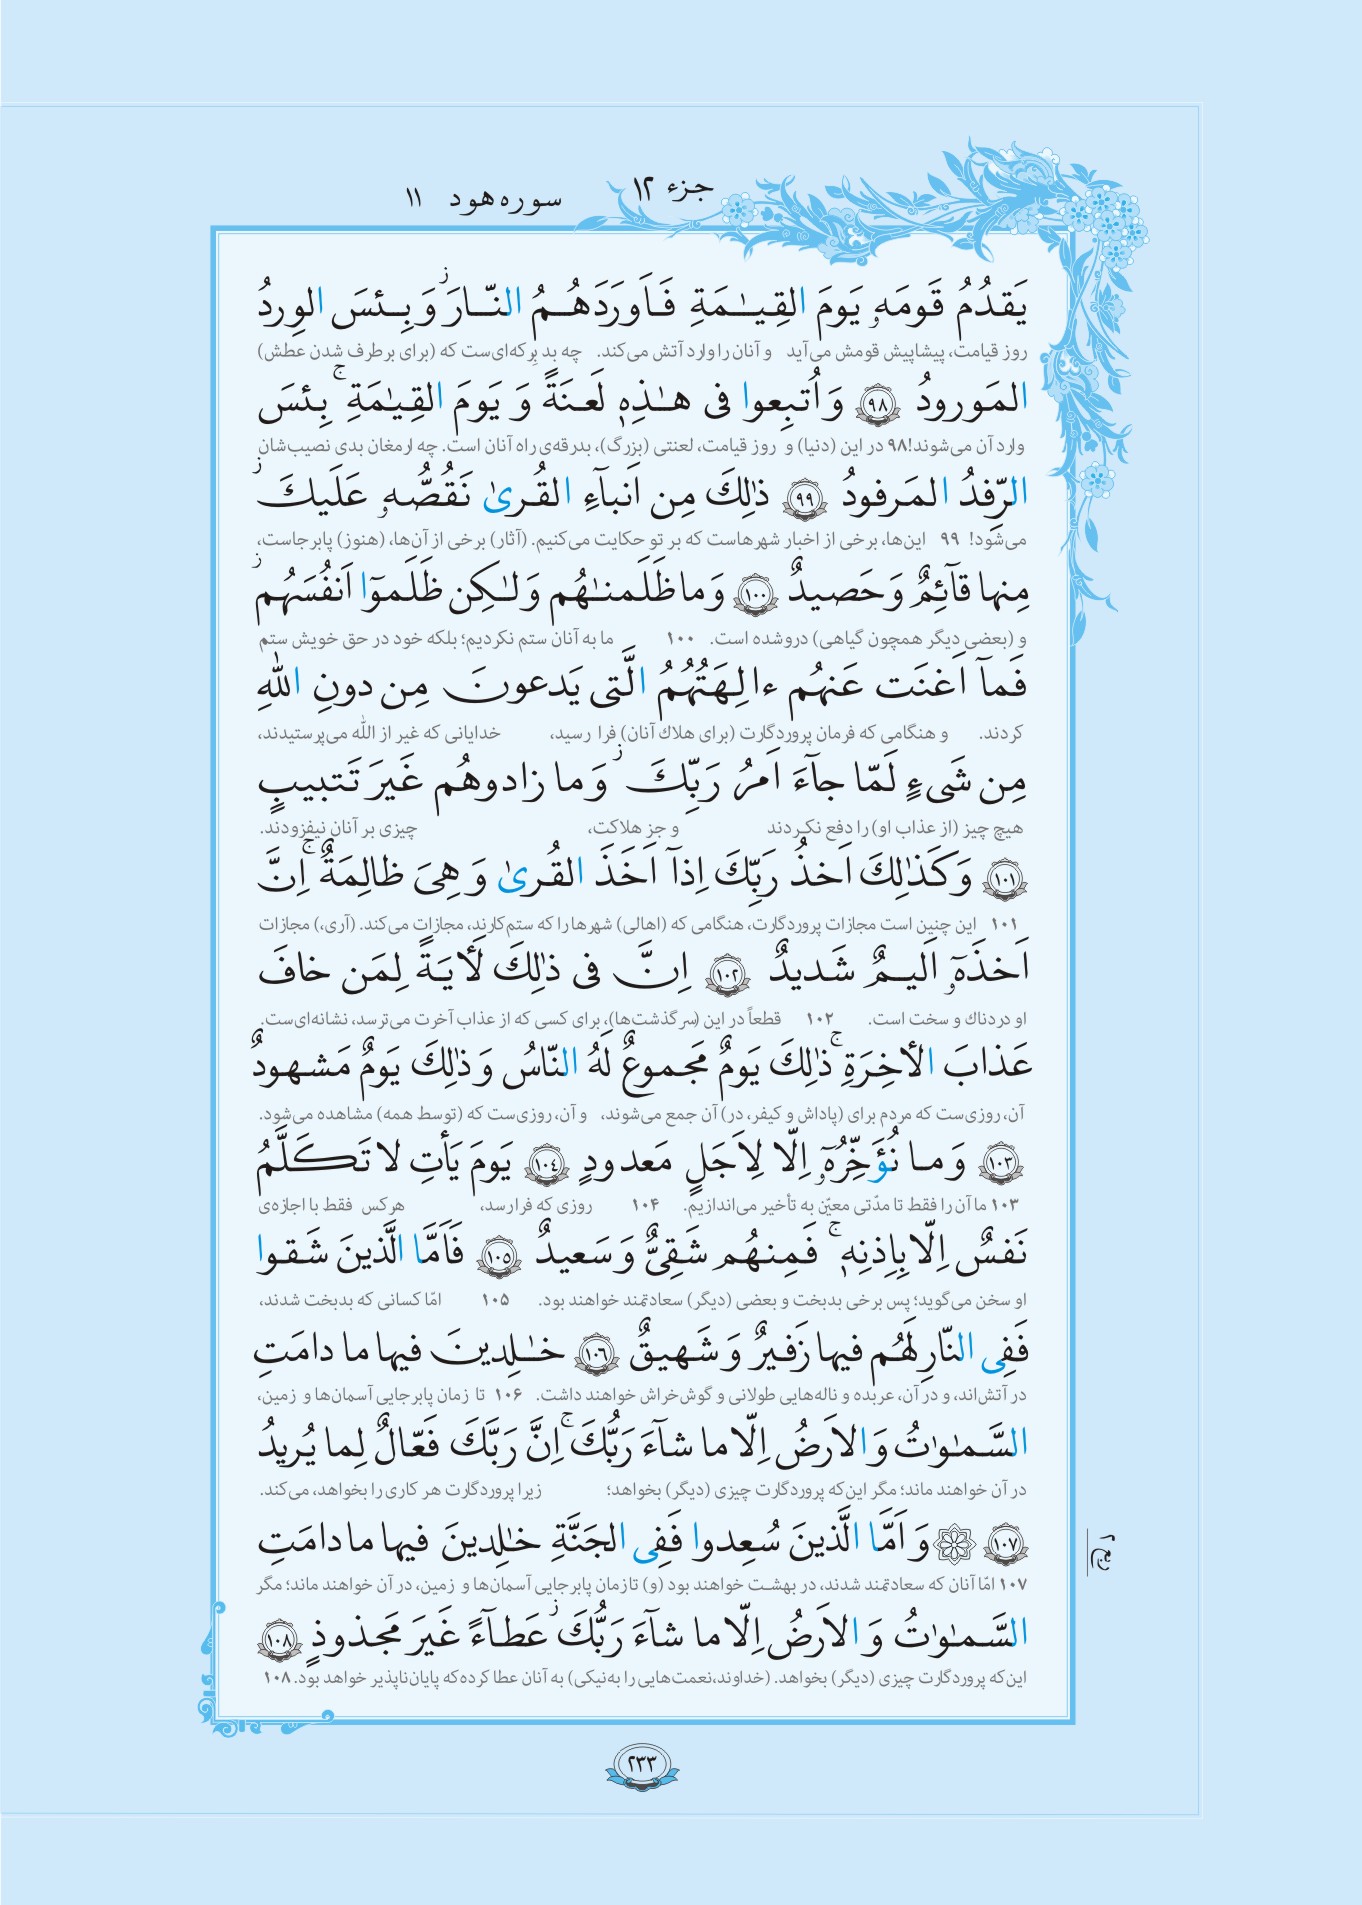 جزء ۱۲
سوره هود ۱۱
يَقدُمُ قَومَهۥ يَومَ القِيـٰمَةِ فَاَورَدَهُمُ النّارَ ۖز وَ بِئسَ الوِردُ
روز قیامت، پیشاپیش قومش می‌آید و آنان را وارد آتش می‌کند. چه بد بِرکه‌ای‌ست که (برای برطرف شدن عطش)
المَورودُ ﴿۹۸﴾ وَ اُتبِعوا فى هـٰذِهٖ لَعنَةً وَ يَومَ القِيـٰمَةِ ۚ بِئسَ
وارد آن می‌شوند! ۹۸ در این (دنیا) و روز قیامت، لعنتی (بزرگ)، بدرقه‌ی راه آنان است. چه ارمغان بدی نصیب‌شان
الرِّفدُ المَرفودُ ﴿۹۹﴾ ذٰلِكَ مِن اَنبآءِ القُرىٰ نَقُصُّهۥ عَلَيكَ ز
می‌شود! ۹۹ این‌ها، برخی از اخبار شهرهاست که بر تو حکایت می‌کنیم. (آثار) برخی از آن‌ها، (هنوز) پابرجاست،
مِنها قآئِمٌ وَ حَصيدٌ ﴿۱۰۰﴾ وَ ما ظَلَمنـٰهُم وَ لـٰكِن ظَلَموٓا اَنفُسَهُم ز
و (بعضی دیگر همچون گیاهی) دروشده است. ۱۰۰ ما به آنان ستم نکردیم؛ بلکه خود در حق خویش ستم
فَمآ اَغنَت عَنهُم ءالِهَتُهُمُ الَّتى يَدعونَ مِن دونِ اللّٰهِ
کردند. و هنگامی که فرمان پروردگارت (برای هلاک آنان) فرا رسید، خدایانی که غیر از اللّٰه می‌پرستیدند،
مِن شَىءٍ لَمّا جآءَ اَمرُ رَبِّكَ ز وَ ما زادوهُم غَيرَ تَتبيبٍ
هیچ چیز (از عذاب او) را دفع نکردند و جز هلاکت، چیزی بر آنان نیفزودند.
﴿۱۰۱﴾ وَ كَذٰلِكَ اَخذُ رَبِّكَ اِذآ اَخَذَ القُرىٰ وَ هِىَ ظالِمَةٌ ۚ اِنَّ
۱۰۱ این چنین است مجازات پروردگارت، هنگامی که (اهالی) شهرها را که ستم‌کارند، مجازات می‌کند. (آری،) مجازات
اَخذَهۥٓ اَليمٌ شَديدٌ ﴿۱۰۲﴾ اِنَّ فى ذٰلِكَ لَأيَةً لِمَن خافَ
او دردناک و سخت است. ۱۰۲ قطعاً در این (سرگذشت‌ها)، برای کسی که از عذاب آخرت می‌ترسد، نشانه‌ای‌ست.
عَذابَ الأخِرَةِ ۚ ذٰلِكَ يَومٌ مَجموعٌ لَهُ النّاسُ وَ ذٰلِكَ يَومٌ مَشهودٌ
آن، روزی‌ست که مردم برای (پاداش و کیفر، در) آن جمع می‌شوند، و آن، روزی‌ست که (توسط همه) مشاهده می‌شود.
﴿۱۰۳﴾ وَ ما نُؤَخِّرُهۥٓ اِلّا لِاَجَلٍ مَعدودٍ ﴿۱۰۴﴾ يَومَ يَأتِ لا تَكَلَّمُ
۱۰۳ ما آن را فقط تا مدّتی معیّن به تأخیر می‌اندازیم. ۱۰۴ روزی که فرارسد، هرکس فقط با اجازه‌ی
نَفسٌ اِلّا بِاِذنِهٖ ۚ فَمِنهُم شَقِىٌّ وَ سَعيدٌ ﴿۱۰۵﴾ فَاَمَّا الَّذينَ شَقوا
او سخن می‌گوید؛ پس برخی بدبخت و بعضی (دیگر) سعادتمند خواهند بود. ۱۰۵ امّا کسانی که بدبخت شدند،
فَفِى النّارِ لَهُم فيها زَفيرٌ وَ شَهيقٌ ﴿۱۰۶﴾ خـٰلِدينَ فيها ما دامَتِ
در آتش‌اند، و در آن، عربده و ناله‌هایی طولانی و گوش‌خراش خواهند داشت. ۱۰۶ تا زمان پابرجایی آسمان‌ها و زمین،
السَّمـٰوٰتُ وَ الاَرضُ اِلّا ما شآءَ رَبُّكَ ۚ اِنَّ رَبَّكَ فَعّالٌ لِما يُريدُ
در آن خواهند ماند؛ مگر این‌که پروردگارت چیزی (دیگر) بخواهد؛ زیرا پروردگارت هر کاری را بخواهد، می‌کند.
﴿۱۰۷﴾ وَ اَمَّا الَّذينَ سُعِدوا فَفِى الجَنَّةِ خـٰلِدينَ فيها ما دامَتِ
۱۰۷ امّا آنان که سعادتمند شدند، در بهشت خواهند بود (و) تا زمان پابرجایی آسمان‌ها و زمین، در آن خواهند ماند؛ مگر
السَّمـٰوٰتُ وَ الاَرضُ اِلّا ما شآءَ رَبُّكَ ز عَطآءً غَيرَ مَجذوذٍ ﴿۱۰۸﴾
این‌که پروردگارت چیزی (دیگر) بخواهد. (خداوند، نعمت‌هایی را به‌نیکی) به آنان عطا کرده که پایان‌ناپذیر خواهد بود. ۱۰۸
۲۳۳